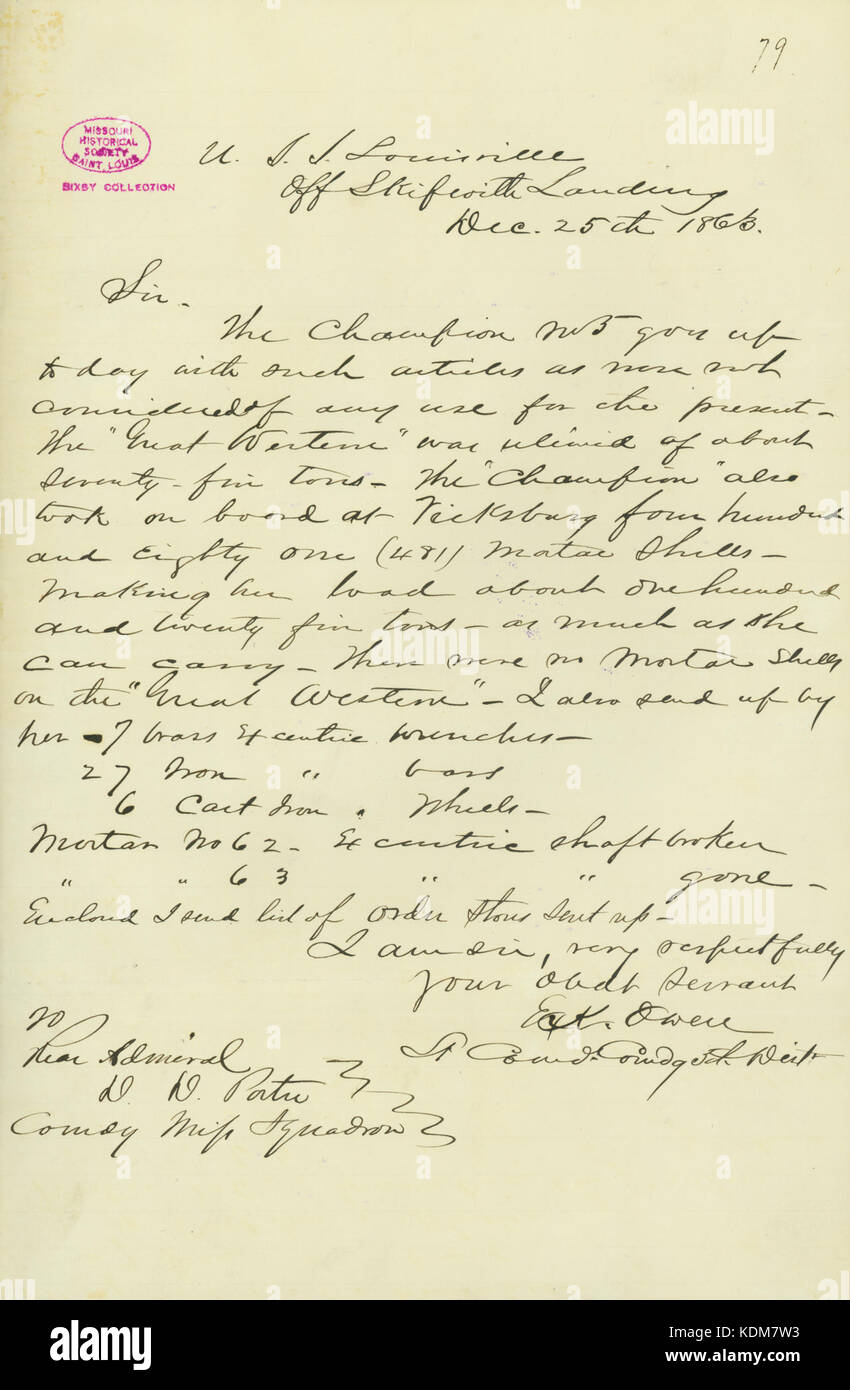 79
MISSOURI
HISTORICAL
SOCIETY
SAINT LOUIS
BIXBY COLLECTION
U. S. S. Louisville
Off Skifwith Landing
Dec. 25th 1863.
Sir-
The Champion No 5 goes up
to day with such articles as were not
considered of any use for the present-
The "Great Western" was relieved of about
seventy-five tons- The "Champion" also
took on board at Vicksburg four hundred
and eighty one (481) Mortar Shells-
Making her load about one hundred
and twenty five tons- as much as she
can carry- There were no Mortar Shells
on the "Great Western"- I also send up by
her- 7 brass Excentric wrenches-
27 Iron " bars
6 Cast Iron " Wheels-
Mortar No 62- Excentric shaft broken
" " 63 " " gone-
Enclosed I send list of Ord. Stores sent up-
I am sir, very respectfully
your obedt servant
E. K. Owen
Lt Comdr. Comdg Dist-
To
Rear Admiral
D. D. Porter
Comdg Miss Squadron
alamy
Image ID: KDM7W3
www.alamy.com